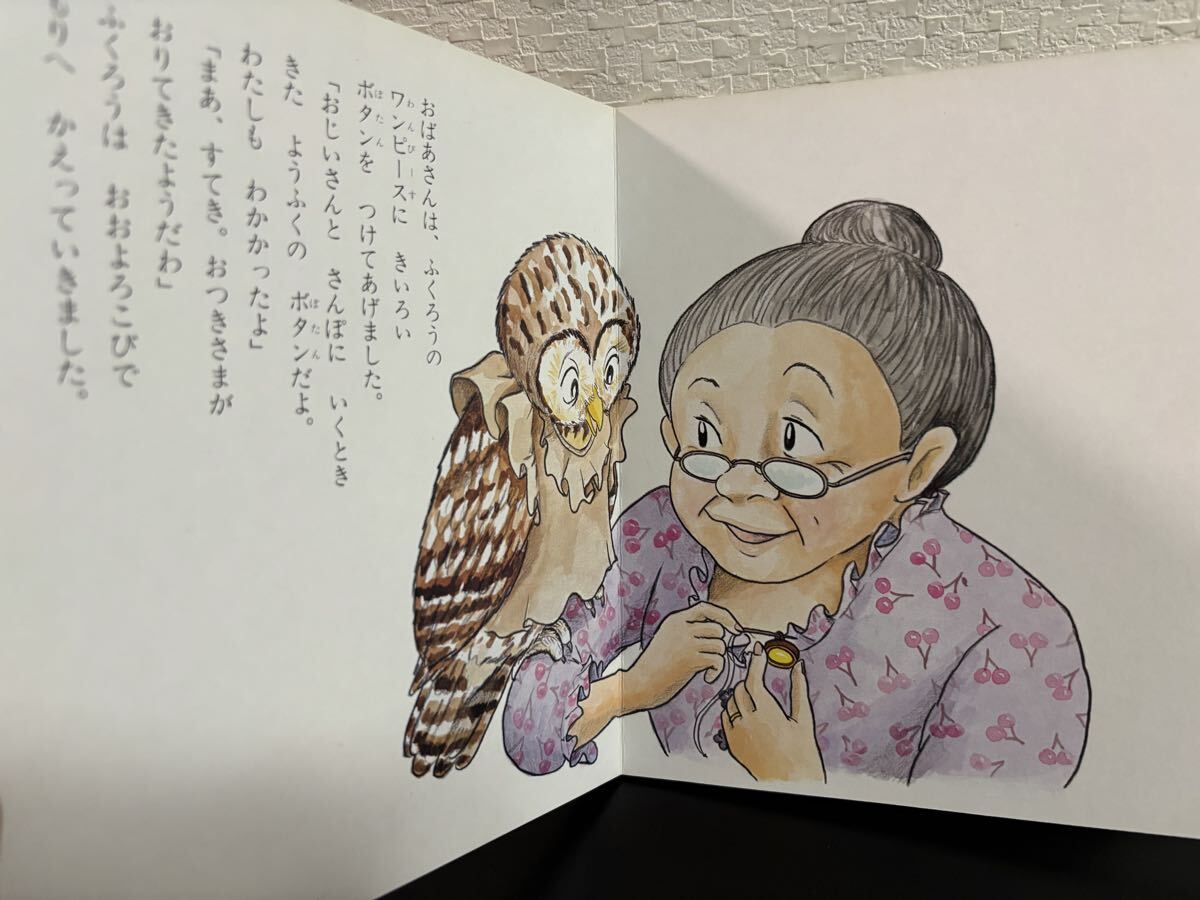 おばあさんは、ふくろうの
ワンピースに　きいろい
ボタンを　つけてあげました。
「おじいさんと　さんぽに　いくとき
きた　ようふくの　ボタンだよ。
わたしも　わかかったよ」
「まあ、すてき。おつきさまが
おりてきたようだわ」
ふくろうは　おおよろこびで
もりへ　かえっていきました。